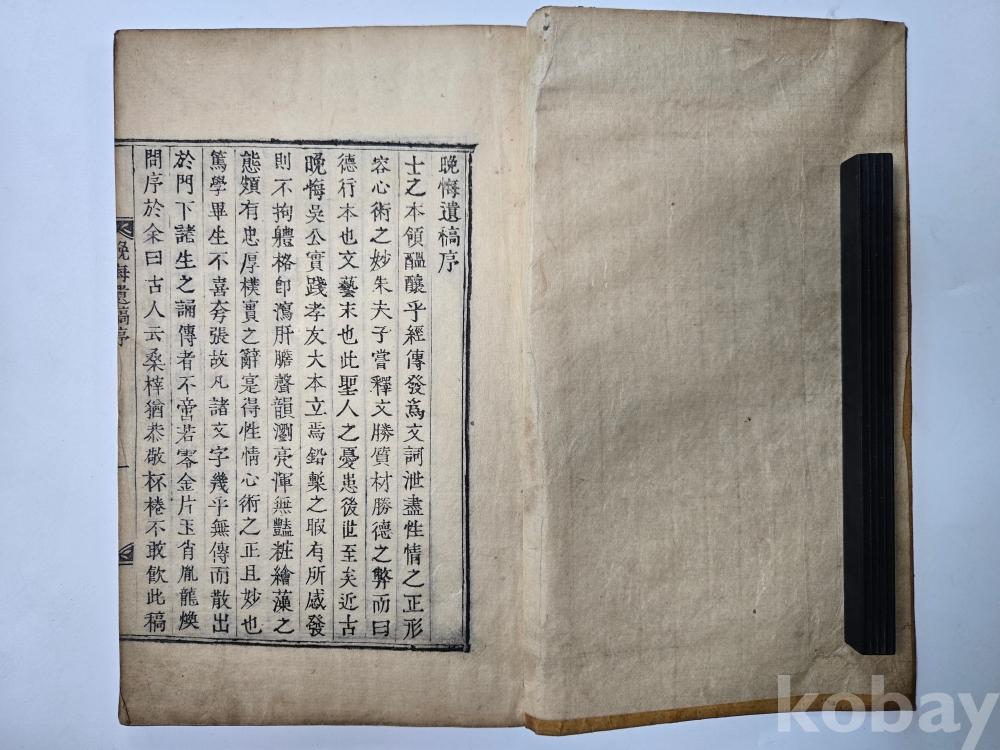 晩悔遺稿序
士之本領醞釀乎經傳發爲文詞泄盡性情之正形
容心術之妙朱夫子嘗釋文勝質材勝德之弊而曰
德行本也文藝末也此聖人之憂患後世至矣近古
晩悔吳公實踐孝友大本立焉鉛槧之暇有所感發
則不拘軆格卽瀉肝膽聲韻瀏亮渾無豔粧繪藻之
態類有忠厚樸實之辭寔得性情心術之正且妙也
篤學畢生不喜夸張故凡諸文字幾乎無傳而散出
於門下諸生之誦傳者不啻若零金片玉肖胤龍煥
問序於余曰古人云桑梓猶恭敬杯棬不敢飮此稿
晩悔遺稿序
一
kobay